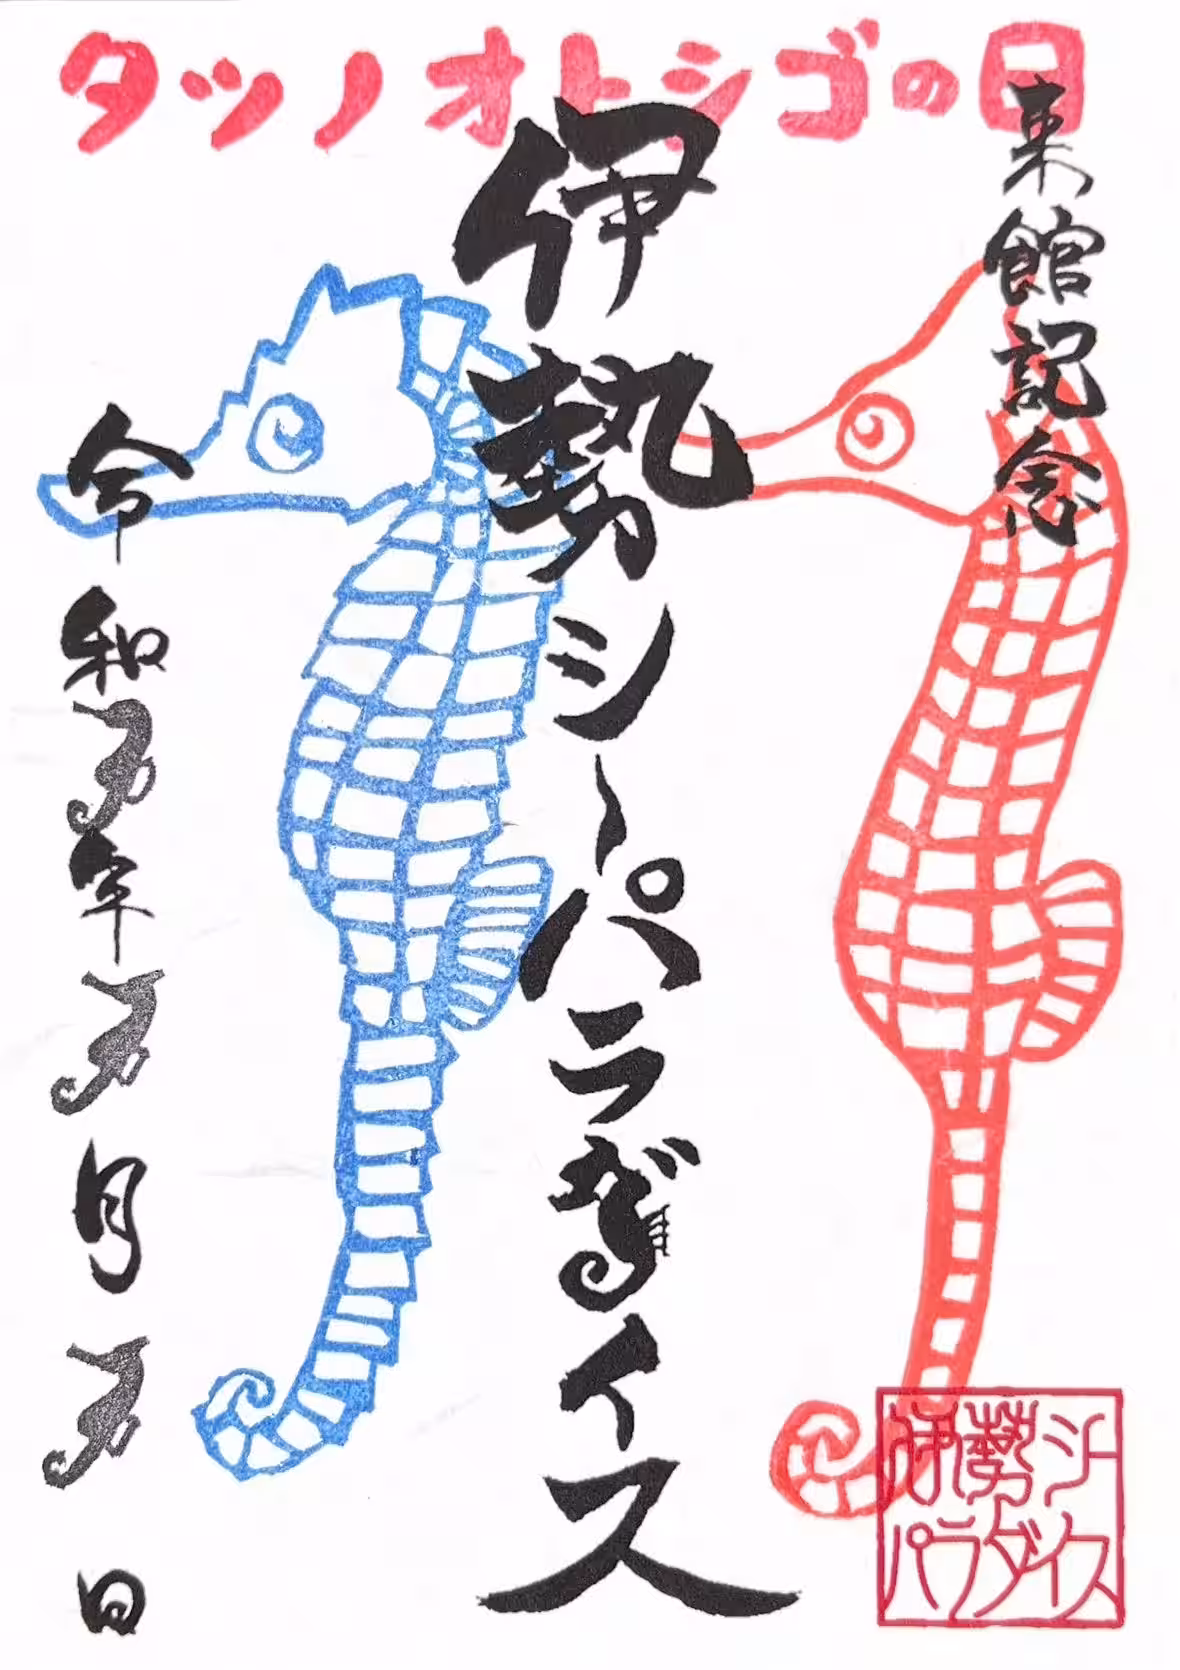 タツノオトシゴの日
来館記念
伊勢シーパラダイス
令和5年5月5日
伊勢シー
パラダイス